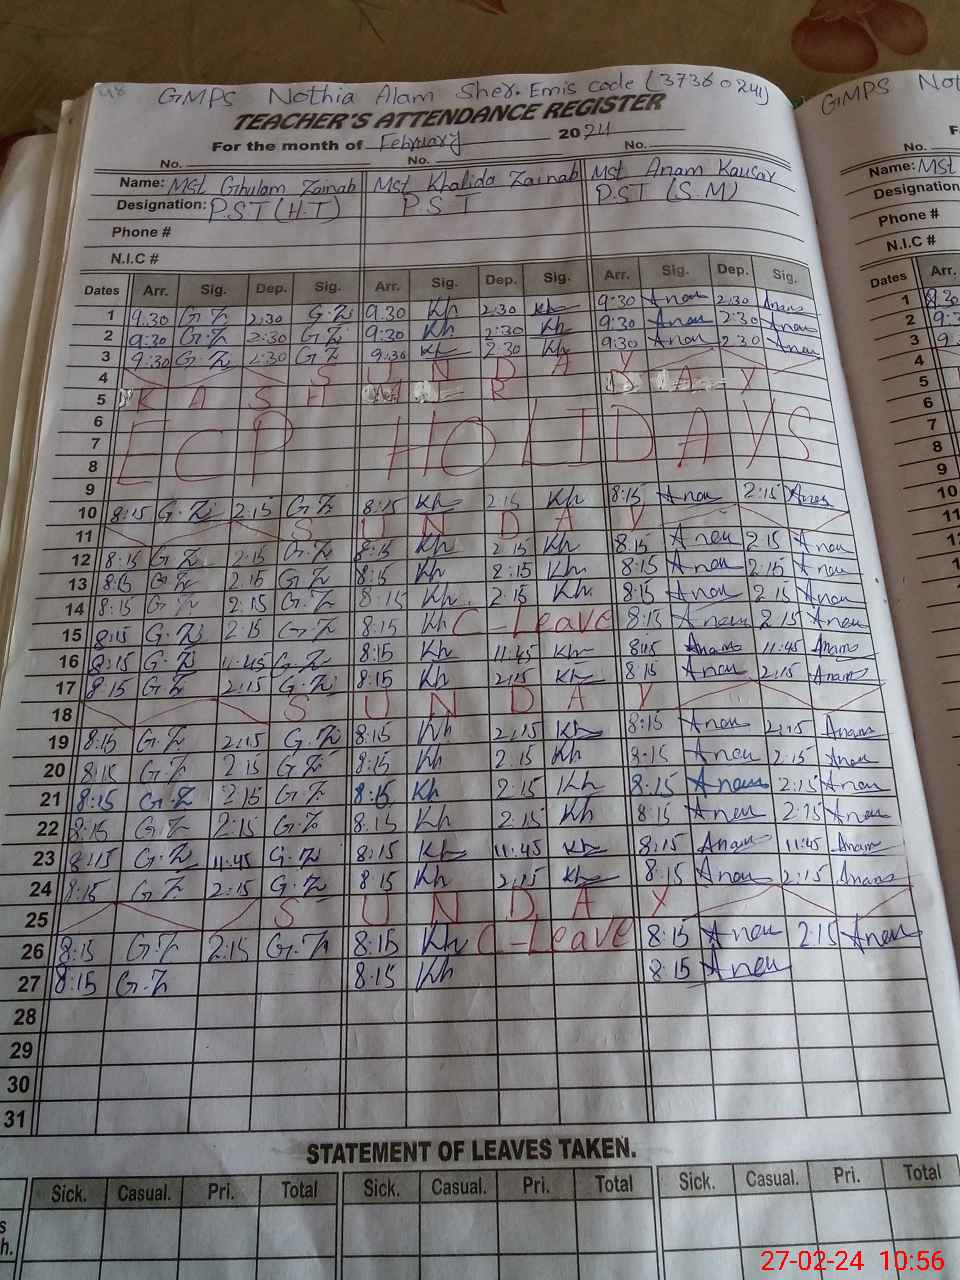 48 GMPS Nothia Alam Sher. Emis code (37360241) GMPS
TEACHER'S ATTENDANCE REGISTER
For the month of February 2024
No. No. No.
Name: Mst Ghulam Zainab Mst Khalida Zainab Mst Anam Kausar Name: Mst
Designation: P.S.T (H.T) P.S.T PST (S.M) Designation
Phone # Phone #
N.I.C # N.I.C #
Dates Arr. Sig. Dep. Sig. Arr. Sig. Dep. Sig. Arr. Sig. Dep. Sig. Dates Arr.
1 9.30 G.Z 2:30 G.Z 9.30 Kh 2:30 Kh 9:30 Anam 2:30 Anam 1
2 9:30 G.Z 2:30 G.Z 9:30 Kh 2:30 Kh 9:30 Anam 2:30 Anam 2
3 9:30 G.Z 2:30 G.Z 9:30 Kh 2:30 Kh 9:30 Anam 2:30 Anam 3
4 S U N D A Y 4
5 K A S H M I R D A Y 5
6 6
7 ECP HOLIDAYS 7
8 8
9 9
10 8:15 G.Z 2:15 G.Z 8:15 Kh 2:15 Kh 8:15 Anam 2:15 Anam 10
11 S U N D A Y 11
12 8:15 G.Z 2:15 G.Z 8:15 Kh 2:15 Kh 8:15 Anam 2:15 Anam
13 8:15 G.Z 2:15 G.Z 8:15 Kh 2:15 Kh 8:15 Anam 2:15 Anam
14 8:15 G.Z 2:15 G.Z 8:15 Kh 2:15 Kh 8:15 Anam 2:15 Anam
15 8:15 G.Z 2:15 G.Z 8:15 Kh C-Leave 8:15 Anam 2:15 Anam
16 8:15 G.Z 11:45 G.Z 8:15 Kh 11:45 Kh 8:15 Anam 11:45 Anam
17 8:15 G.Z 2:15 G.Z 8:15 Kh 2:15 Kh 8:15 Anam 2:15 Anam
18 S U N D A Y
19 8:15 G.Z 2:15 G.Z 8:15 Kh 2:15 Kh 8:15 Anam 2:15 Anam
20 8:15 G.Z 2:15 G.Z 8:15 Kh 2:15 Kh 8:15 Anam 2:15 Anam
21 8:15 G.Z 2:15 G.Z 8:15 Kh 2:15 Kh 8:15 Anam 2:15 Anam
22 8:15 G.Z 2:15 G.Z 8:15 Kh 2:15 Kh 8:15 Anam 2:15 Anam
23 8:15 G.Z 11:45 G.Z 8:15 Kh 11:45 Kh 8:15 Anam 11:45 Anam
24 8:15 G.Z 2:15 G.Z 8:15 Kh 2:15 Kh 8:15 Anam 2:15 Anam
25 S U N D A Y
26 8:15 G.Z 2:15 G.Z 8:15 Kh C-Leave 8:15 Anam 2:15 Anam
27 8:15 G.Z 8:15 Kh 8:15 Anam
28
29
30
31
STATEMENT OF LEAVES TAKEN.
Sick. Casual. Pri. Total Sick. Casual. Pri. Total Sick. Casual. Pri. Total
27-02-24 10:56